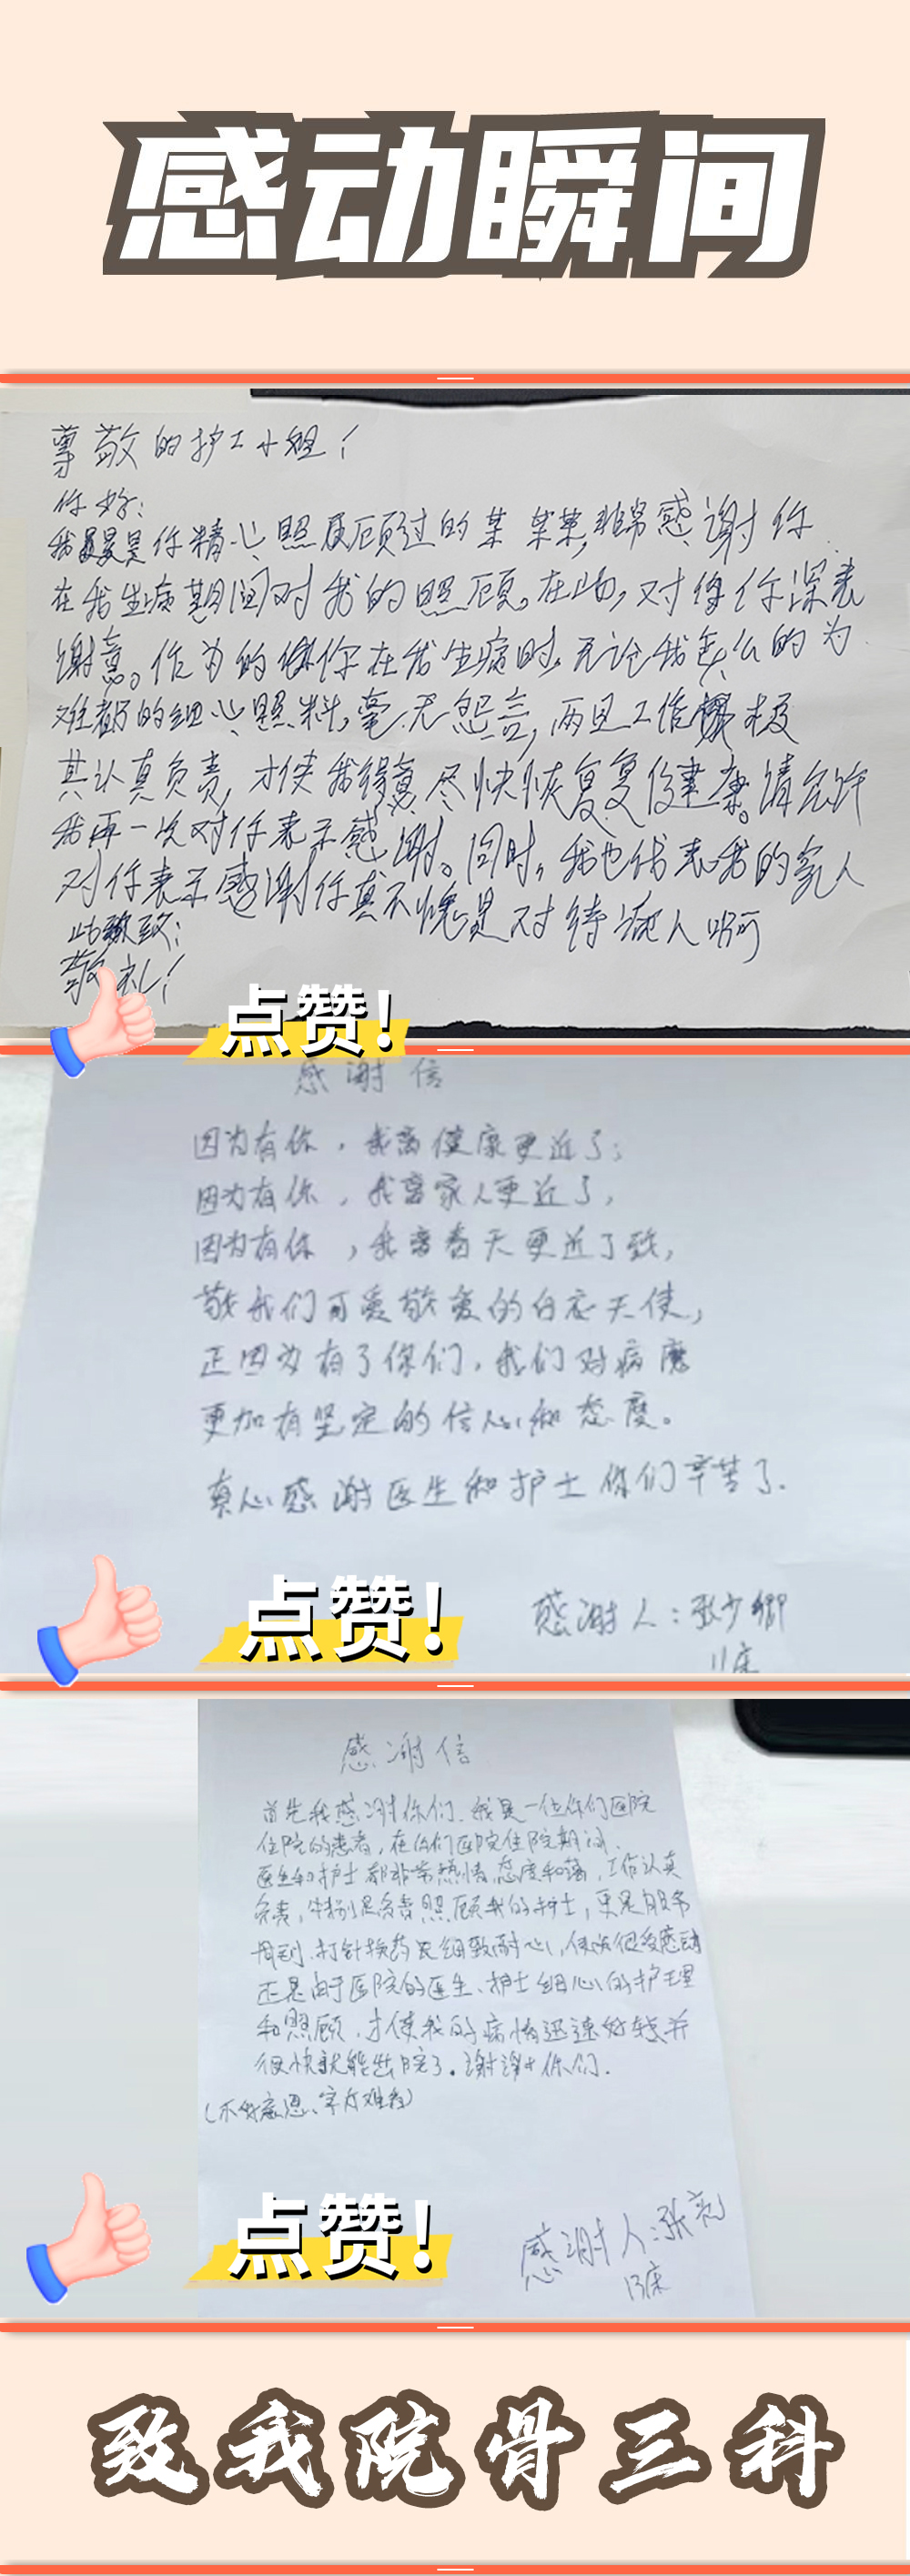 感动瞬间
尊敬的护士小姐！
你好：
我是你精心照顾过的某某某,非常感谢你
在我生病期间对我的照顾。在此,对你深表
谢意。作为的你在我生病时,无论我怎么的为
难都的细心照料,毫无怨言,而且工作极
其认真负责,才使我得意尽快恢复复健康。请允许
我再一次对你表示感谢。同时,我也代表我的家人
对你表示感谢你真不愧是对待病人啊
此致：
敬礼！
点赞!
感谢信
因为有你，我离健康更近了；
因为有你，我离家人更近了，
因为有你，我离春天更近了致，
敬我们可爱敬爱的白衣天使，
正因为有了你们，我们对病魔
更加有坚定的信心和态度。
真心感谢医生和护士你们辛苦了.
点赞!
感谢人：张少卿
11床
感谢信
首先我感谢你们、我是一位你们医院
住院的患者，在你们医院住院期间、
医生和护士都非常热情,态度和蔼，工作认真
负责，特别是负责照顾我的护士，更是服务
周到、打针换药更细致耐心,使我很受感动
正是由于医院的医生、护士细心的护理
和照顾，才使我的病情迅速好转并
很快就能出院了。谢谢你们.
(不好意思、字太难看)
点赞!
感谢人:张亮
13床
致我院骨三科